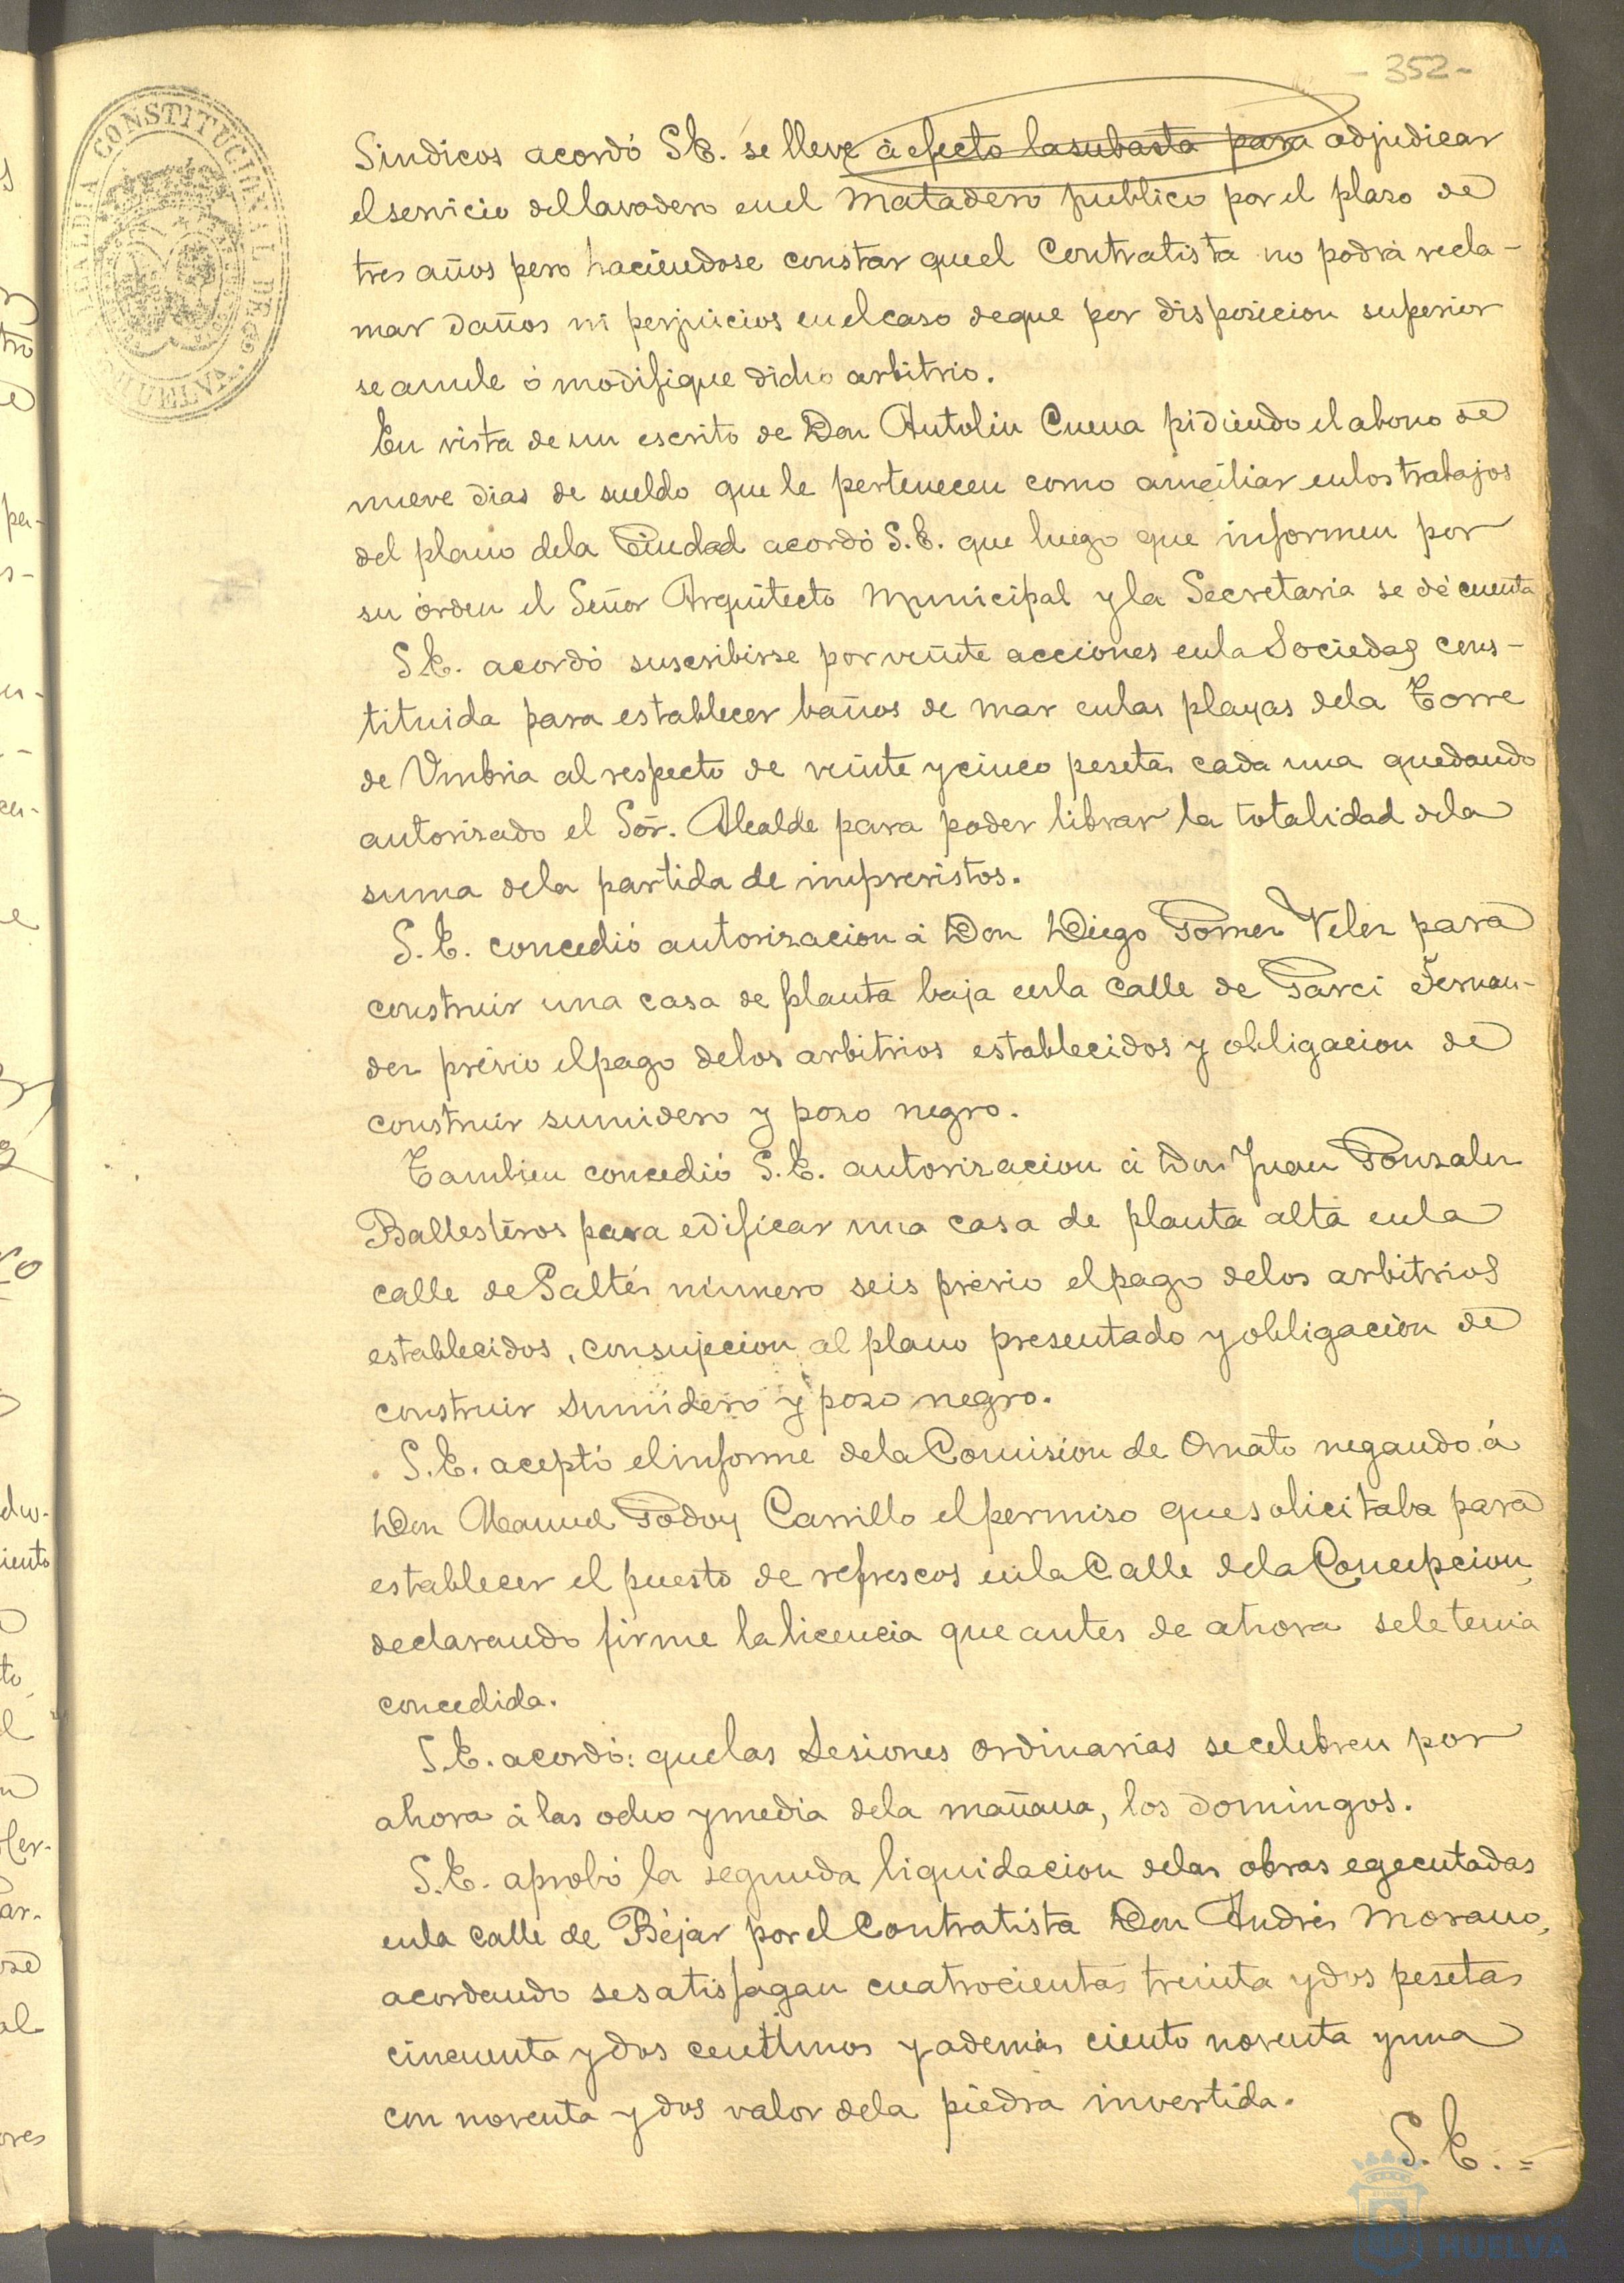 - 352 -
ALCALDIA CONSTITUCIONAL DE
HUELVA.
Sindicos acordó S.E. se lleve á efecto la subasta para adjudicar
el servicio del lavadero en el Matadero publico por el plazo de
tres años pero haciendose constar que el Contratista no podrá recla-
mar daños ni perjuicios en el caso de que por disposicion superior
se anule ó modifique dicho arbitrio.
En vista de un escrito de Don Antolin Cueva pidiendo el abono de
nueve dias de sueldo que le pertenecen como auxiliar en los trabajos
del plano de la Ciudad acordó S.E. que luego que informen por
su órden el Señor Arquitecto Municipal y la Secretaria se dé cuenta
S.E. acordó suscribirse por veinte acciones en la Sociedad cons-
tituida para establecer baños de mar en las playas de la Torre
de Umbria al respecto de veinte y cinco pesetas cada una quedando
autorizado el Sór. Alcalde para poder librar la totalidad de la
suma de la partida de imprevistos.
S.E. concedió autorizacion á Don Diego Gomez Velez para
construir una casa de planta baja en la calle de Garci Fernan-
dez prévio el pago de los arbitrios establecidos y obligacion de
construir sumidero y pozo negro.
Tambien concedió S.E. autorizacion á Don Juan Gonzalez
Ballesteros para edificar una casa de planta alta en la
calle de Saltés número seis prévio el pago de los arbitrios
establecidos, con sujecion al plano presentado y obligacion de
construir sumidero y pozo negro.
S.E. aceptó el informe de la Comision de Ornato negando á
Don Manuel Godoy Carrillo el permiso que solicitaba para
establecer el puesto de refrescos en la Calle de la Concepcion,
declarando firme la licencia que antes de ahora se le tenia
concedida.
S.E. acordó: que las Sesiones ordinarias se celebren por
ahora á las ocho y media de la mañana, los domingos.
S.E. aprobó la segunda liquidacion de las obras egecutadas
en la calle de Béjar por el Contratista Don Andrés Morano,
acordando se satisfagan cuatrocientas treinta y dos pesetas
cincuenta y dos centimos y además ciento noventa y una
con noventa y dos valor de la piedra invertida.
S.E.=
HUELVA